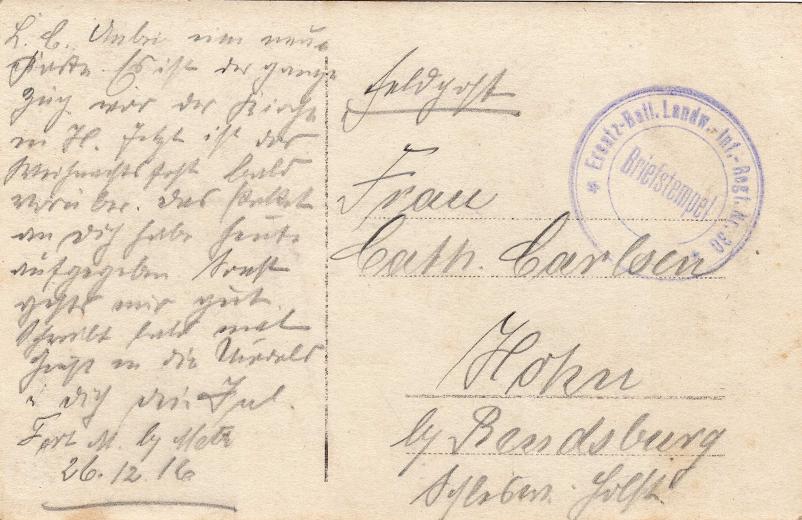 L. C. Anbei eine neue
Karte. Es ist der ganze
Zug vor der Kirche
in H. Jetzt ist das
Weihnachtsfest bald
vorüber. Das Paket
an dich habe heute
aufgegeben. Sonst
gehts mir gut.
Schreibt bald mal
Grüßt in die
dich dein Jul.
Fort M. b/ Metz
26.12.16
Feldpost
Frau
Cath. Carlsen
Hohn
b/ Rendsburg
Schlesw. Holst.
* Ersatz-Batl. Landw.-Inf.-Regt. Nr. 30 *
Briefstempel